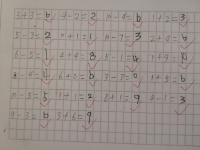 3+3=6 9-2=2 10-4=6 1+2=3
5-3=2 0+1=1 10-7=3 2+6=
6-5=1 4+4=8 =4 1+9=10
8-4=4 6+0=6 3-3=0 1+5=6
10-5=5 1+1=2 8+1=9 4-1=3
9-3=6 3+6=9